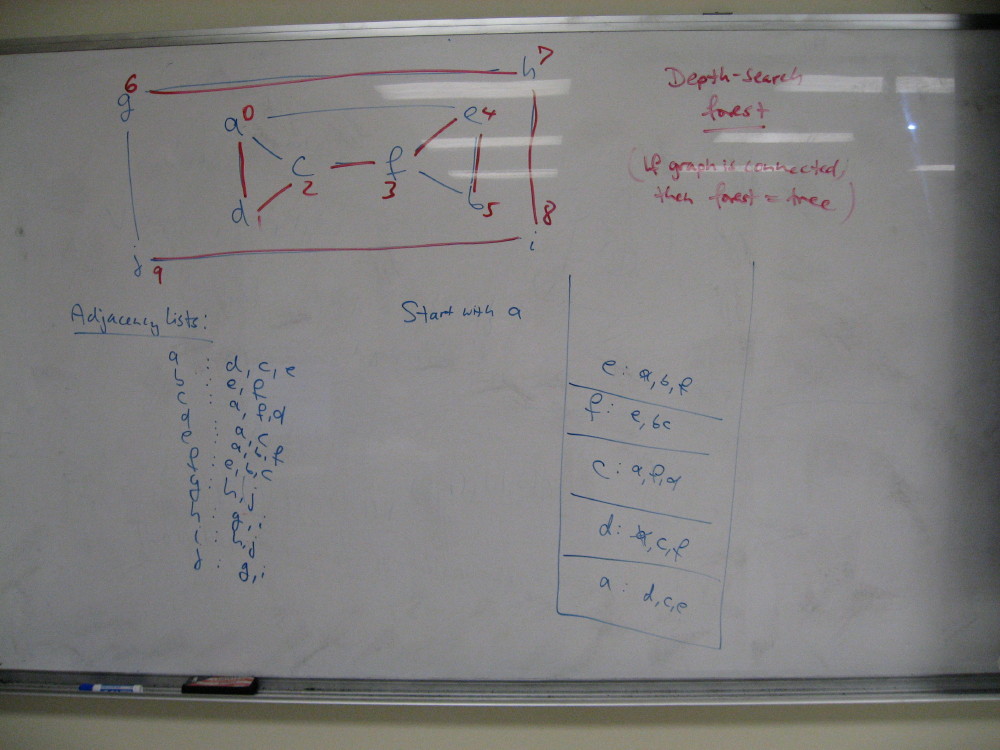 6 g
h 7
a 0
e 4
c 2
f 3
d 1
b 5
8 i
j 9
Depth-Search
forest
(if graph is connected,
then forest = tree)
Adjacency lists:
a : d, c, e
b : e, f
c : a, f, d
d : a, c
e : a, b, f
f : e, b, c
g : h, j
h : g, i
i : h, j
j : g, i
Start with a
e: a, b, f
f: e, b c
c: a, f, d
d: a, c, f
a: d, c, e